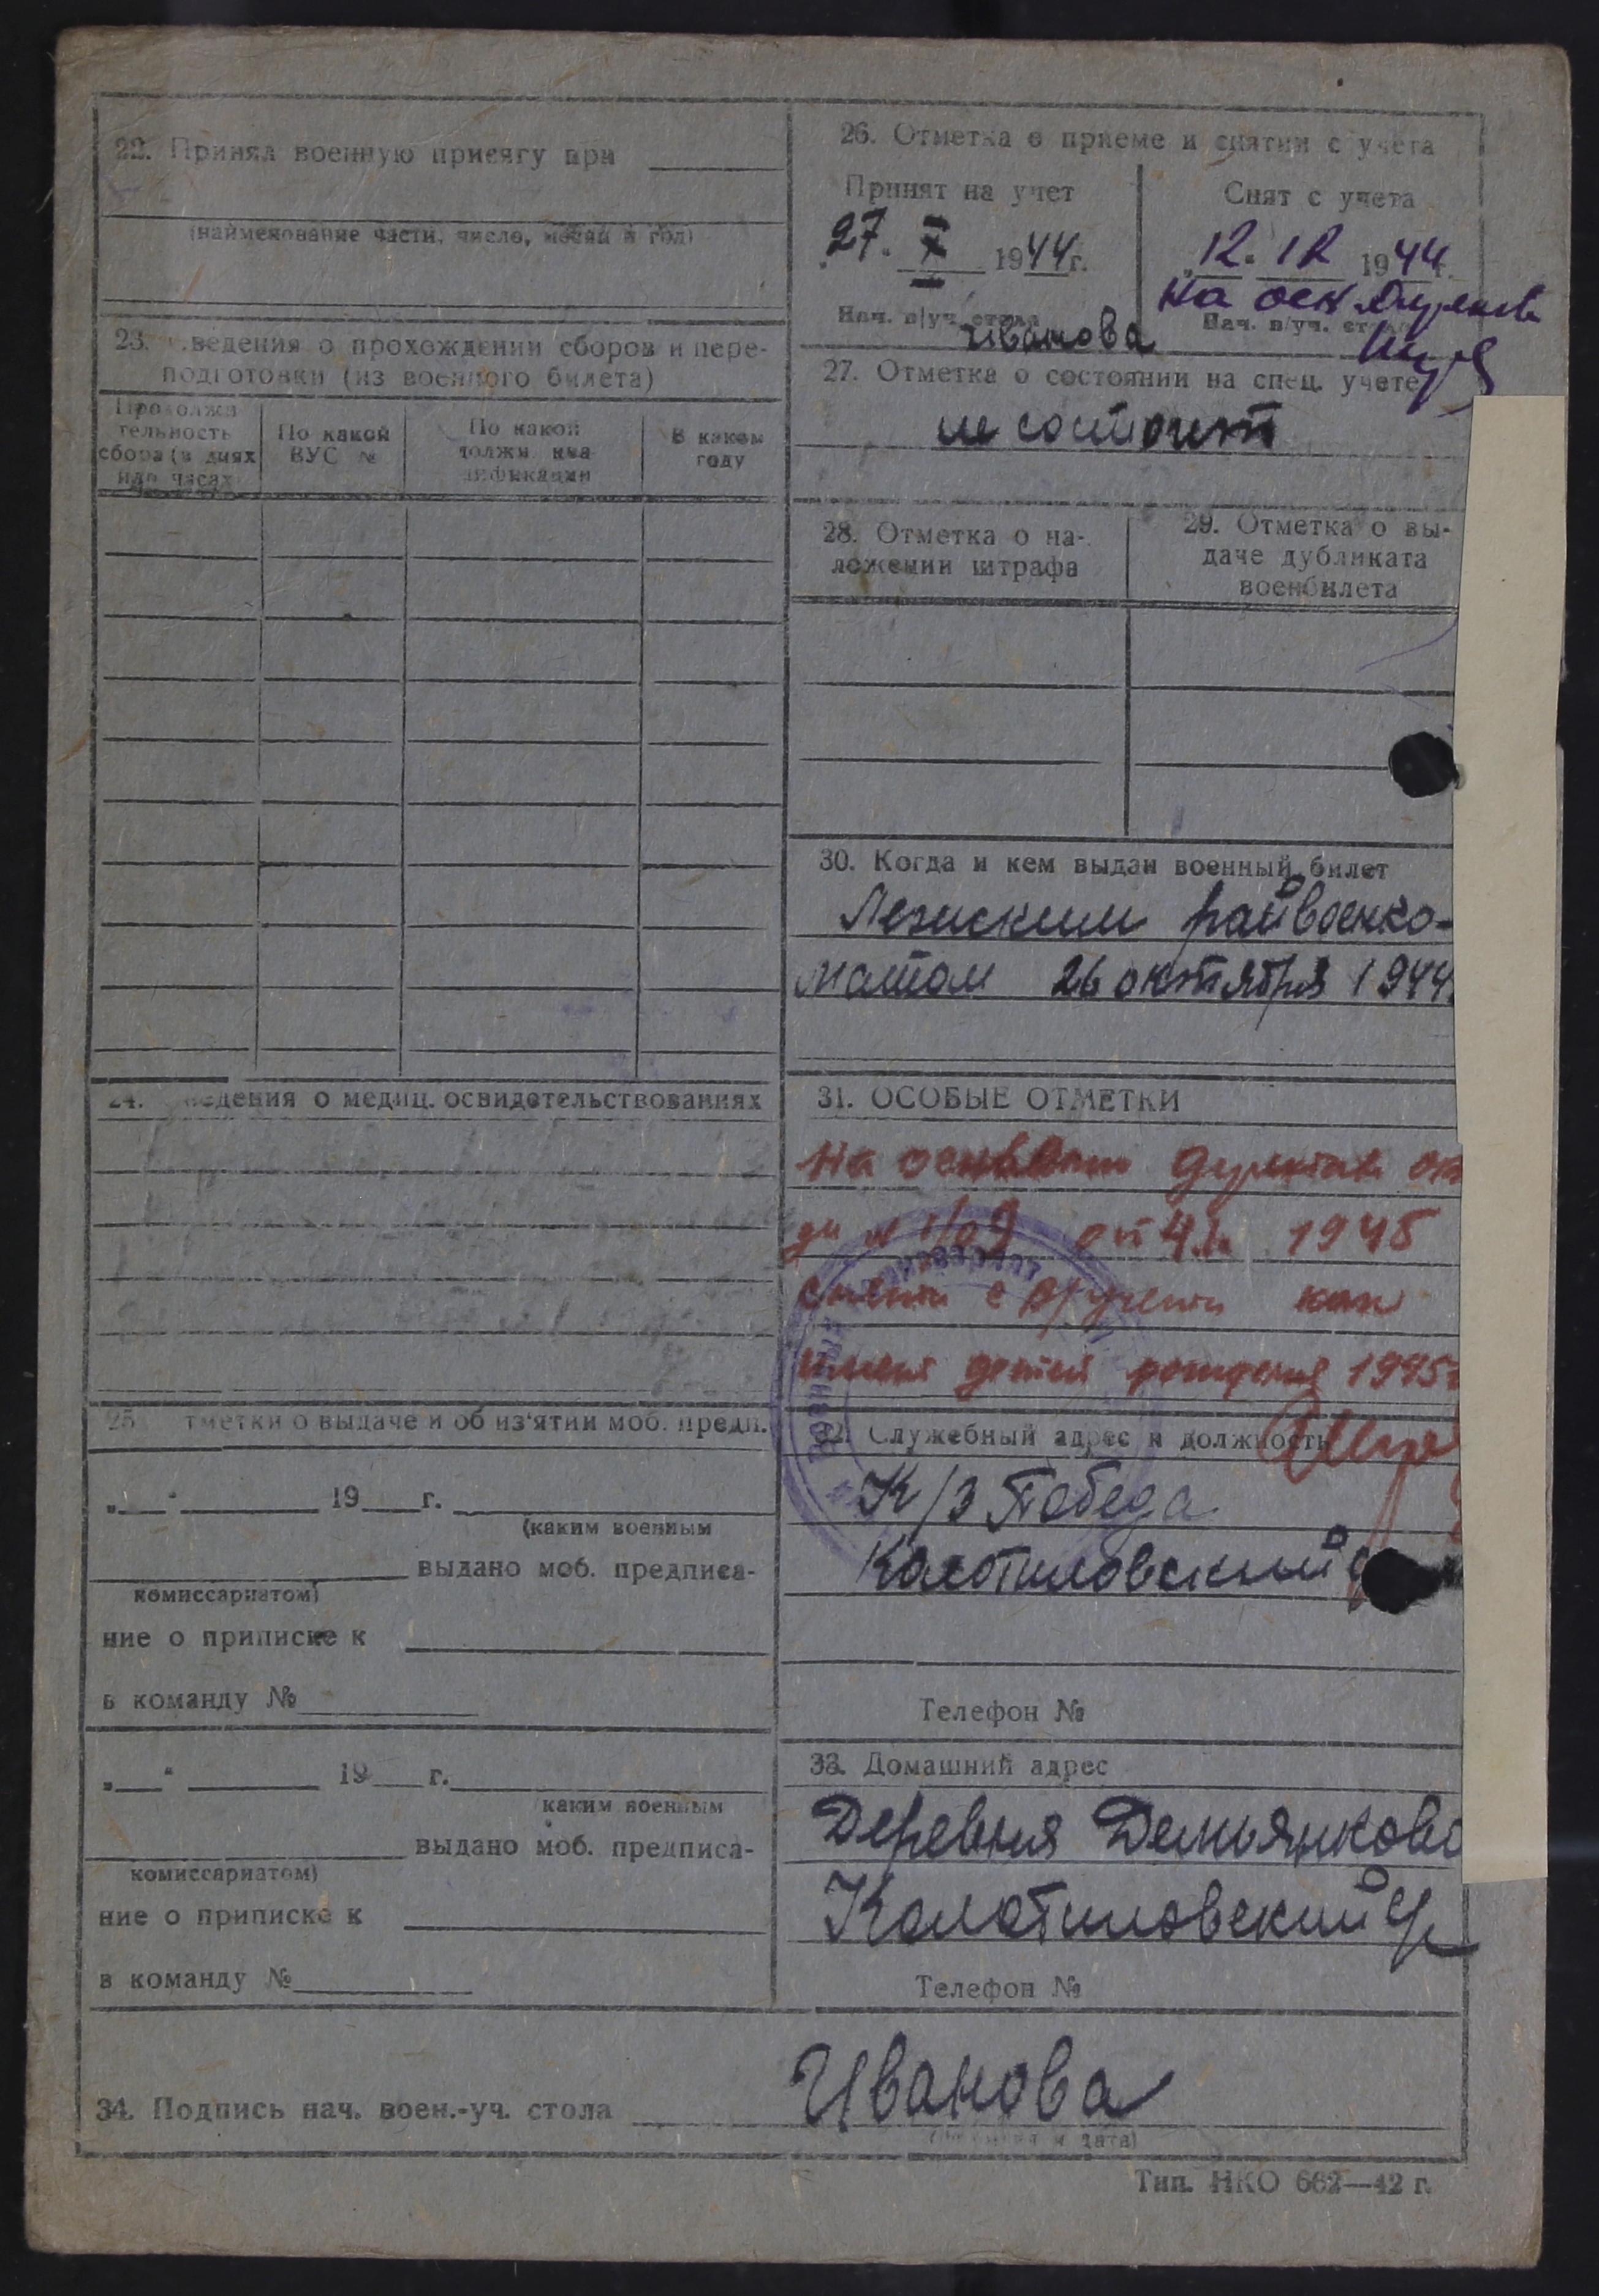 22. Принял военную присягу при
(наименование части, число, месяц и год)
23. ведения о прохождении сборов и пере-
подготовки (из военного билета)
Продолжи
тельность
сбора (в днях
или часах
По какой
ВУС №
По какой
должн. ква
лификации
В каком
году
24. ведения о медиц. освидетельствованиях
25. тметки о выдаче и об из'ятии моб. предп.
„ “ 19 г.
(каким военным
выдано моб. предписа-
комиссариатом)
ние о приписке к
в команду №
„ “ 19 г.
каким военным
выдано моб. предписа-
комиссариатом)
ние о приписке к
в команду №
26. Отметка о приеме и снятии с учета
Принят на учет
27. X 1944 г.
Нач. в/уч. стола
Иванова
Снят с учета
12. 12 1944 г.
на осн
Нач. в/уч. ст
27. Отметка о состоянии на спец. учете
не состоит
28. Отметка о на-
ложении штрафа
29. Отметка о вы-
даче дубликата
военбилета
30. Когда и кем выдан военный билет
райвоенко-
матом 26 октября 1944
31. ОСОБЫЕ ОТМЕТКИ
На
от 1945
с как
детей рождения 1945г
32. Служебный адрес и должность
К/з Победа
Телефон №
33. Домашний адрес
Деревня Демьянково
Колотиловский
Телефон №
34. Подпись нач. воен.-уч. стола Иванова
Тип. НКО 662—42 г.